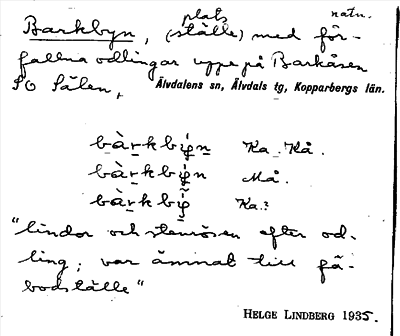 natn.
plats
Barkbyn, (ställe) med för-
fallna odlingar uppe på Barkåsen
SO Sälen, Älvdalens sn, Älvdals tg, Kopparbergs län.
Ka. Kå.
Må.
Ka.?
"lindor och stenrösen efter od-
ling; var ämnat till fä-
bodställe"
HELGE LINDBERG 1935.